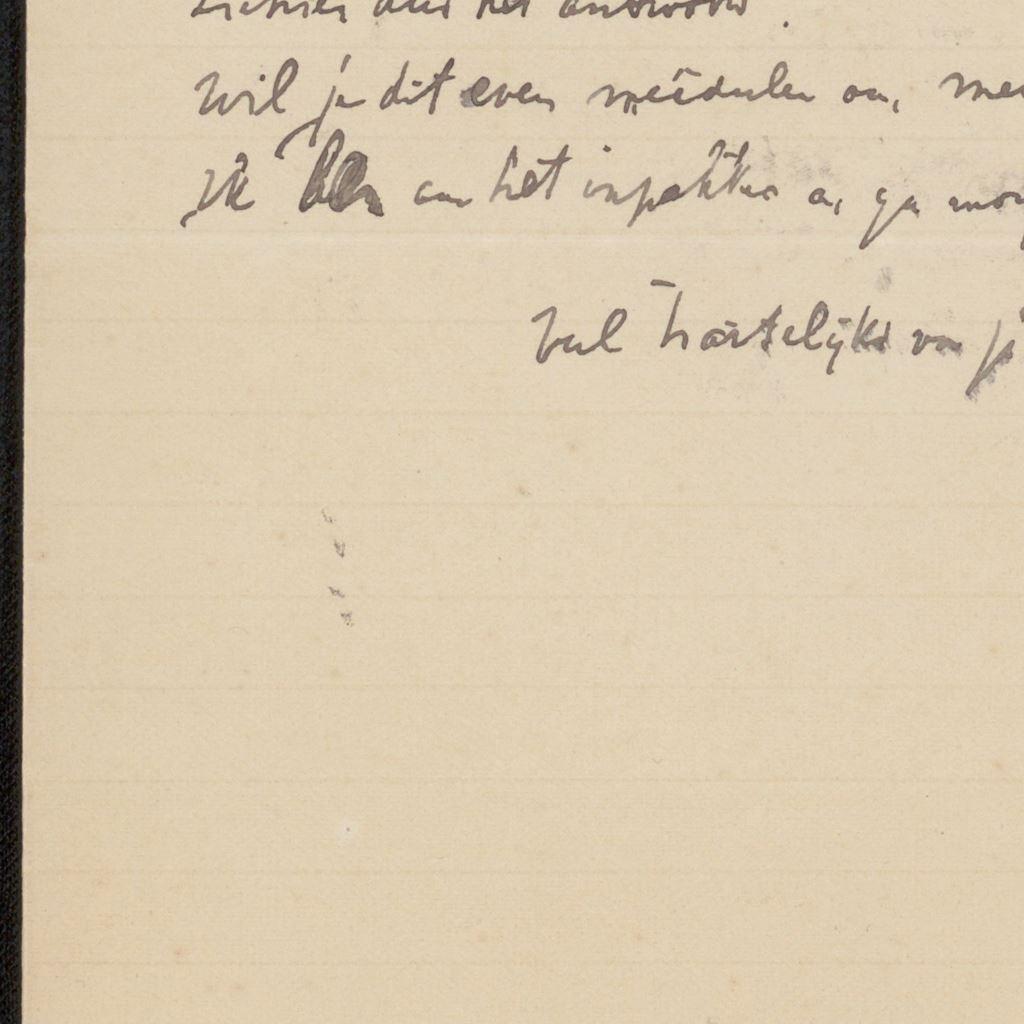 het antwoord.
Wil je dit even meedeelen aan
Ik ben aan het inpakken en ga
Veel hartelijks van je